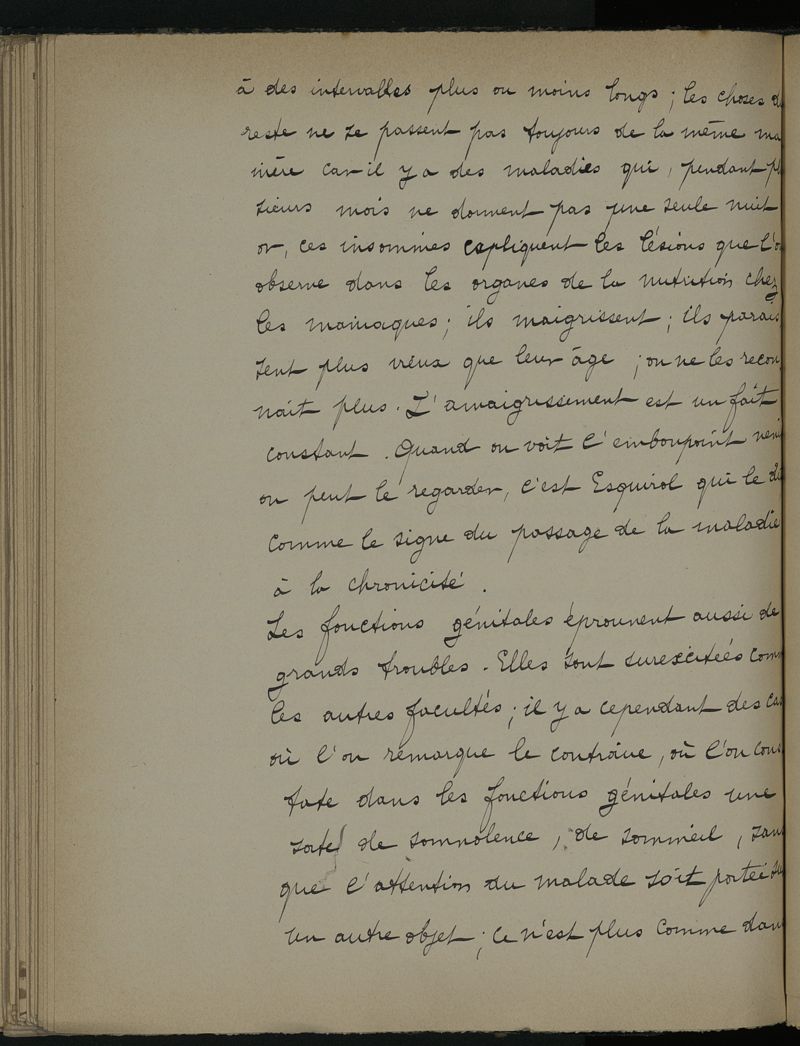 à des intervalles plus ou moins longs ; les choses d
reste ne se passent pas toujours de la même ma
nière car il y a des maladies qui, pendant pl
sieurs mois ne donnent pas une seule nuit
or, ces insomnies expliquent les lésions que l'o
observe dans les organes de la nutrition chez
les maniaques ; ils maigrissent ; ils parais
sent plus vieux que leur âge ; on ne les recon
nait plus. L'amaigrissement est un fait
constant. Quand on voit l'embonpoint veni
on peut le regarder, c'est Esquirol qui le di
comme le signe du passage de la maladie
à la chronicité.
Les fonctions génitales éprouvent aussi de
grands troubles. Elles sont surexcitées comm
les autres facultés ; il y a cependant des cas
où l'on remarque le contraire, où l'on cons
tate dans les fonctions génitales une
sorte de somnolence, de sommeil, sans
que l'attention du malade soit portée su
un autre objet ; ce n'est plus comme dans